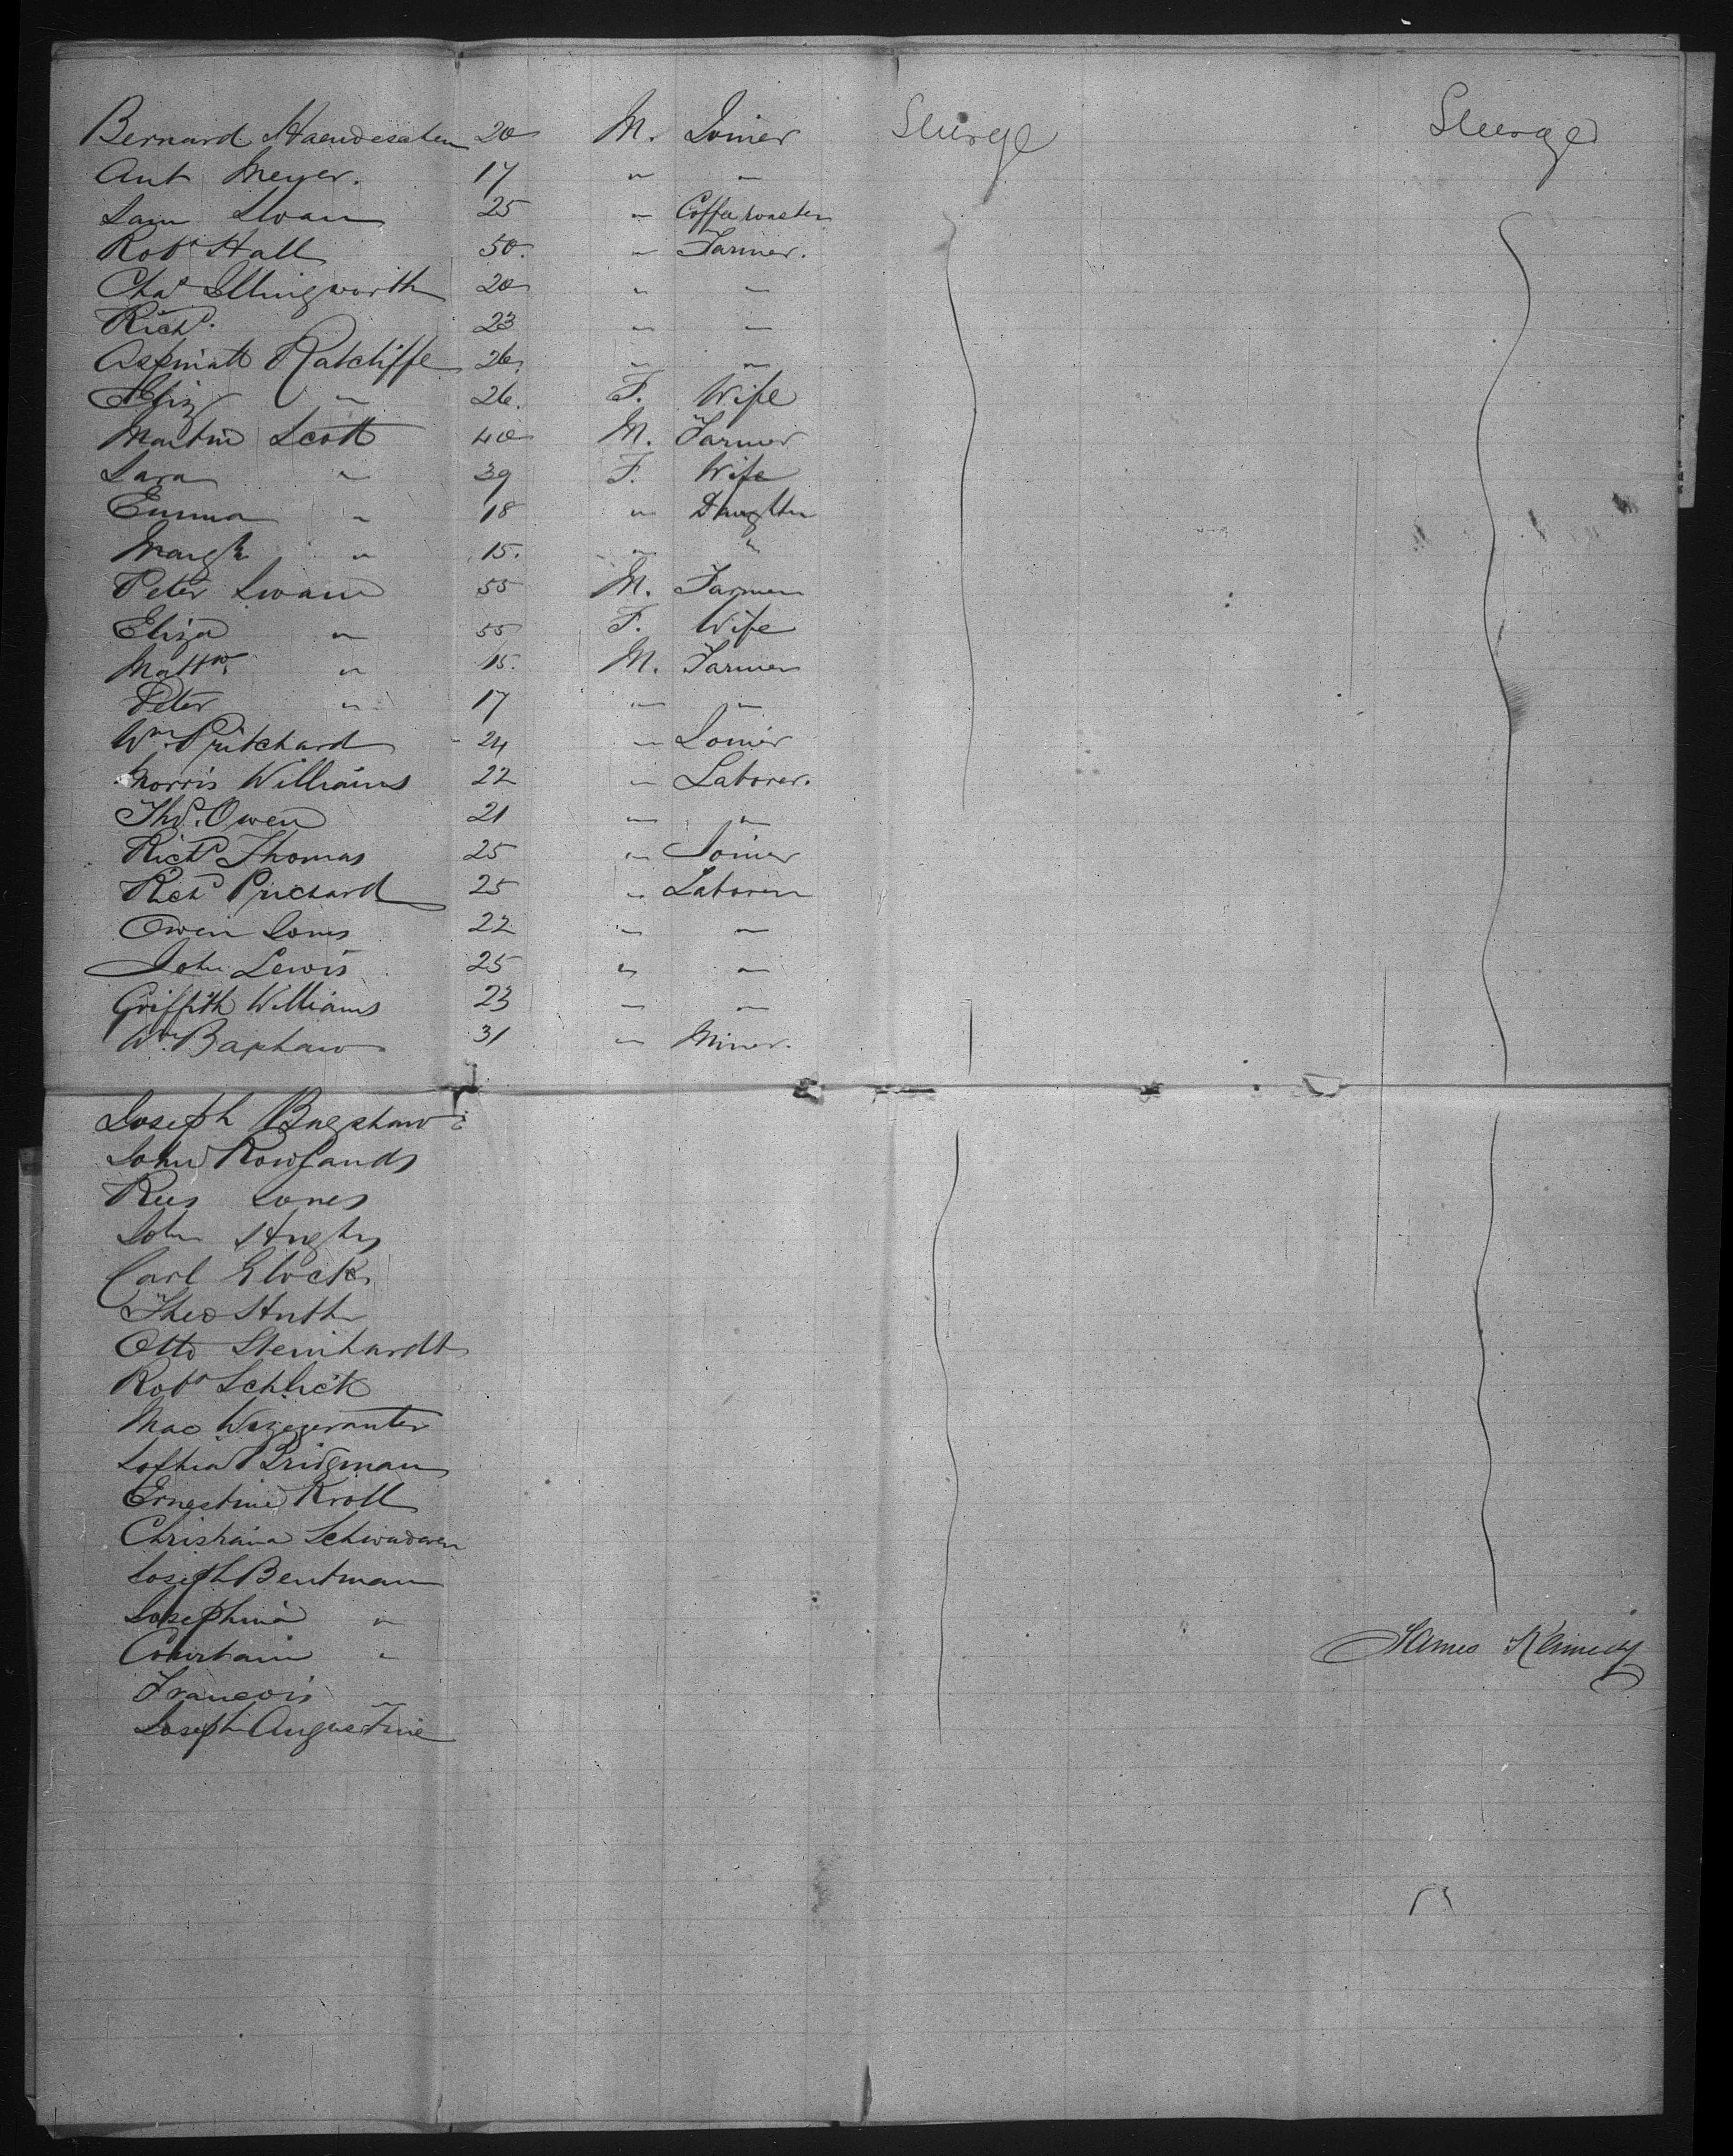 Bernard 20 M. Joiner Steerage Steerage
Ant Meyer. 17 " "
Sam Sloan 25 " Coffee roaster
Robt Hall 50. " Farmer.
Chas Illingworth 20 " "
Richd. 23 " "
Aspinall Ratcliffe 26. " "
Eliz " 26. F. Wife
Martin Scott 40 M. Farmer
Sara " 39 F. Wife
Emma " 18 " Daughter
Margt " 15. " "
Peter Swann 55 M. Farmer
Eliza " 55 F. Wife
Mattw. " 15. M. Farmer
Peter " 17 " "
Wm Pritchard 24 " Joiner
Morris Williams 22 " Laborer.
Thos. Owen 21 " "
Richd Thomas 25 " Joiner
Richd Prichard 25 " Laborer
Owen Jones 22 " "
John Lewis 25 " "
Griffith Williams 23 " "
Wm. 31 " Miner.
Joseph Bagshaw
John Rowlands
Rees Jones
John Hughs
Carl Glock
Theo Huth
Otto Steinhardt
Robt Schlick
Max
Sophia Bridgman
Ernestine Kroll
Christiana
Joseph Bentman
Josephina "
"
Francois
Joseph Augustine
James Kennedy